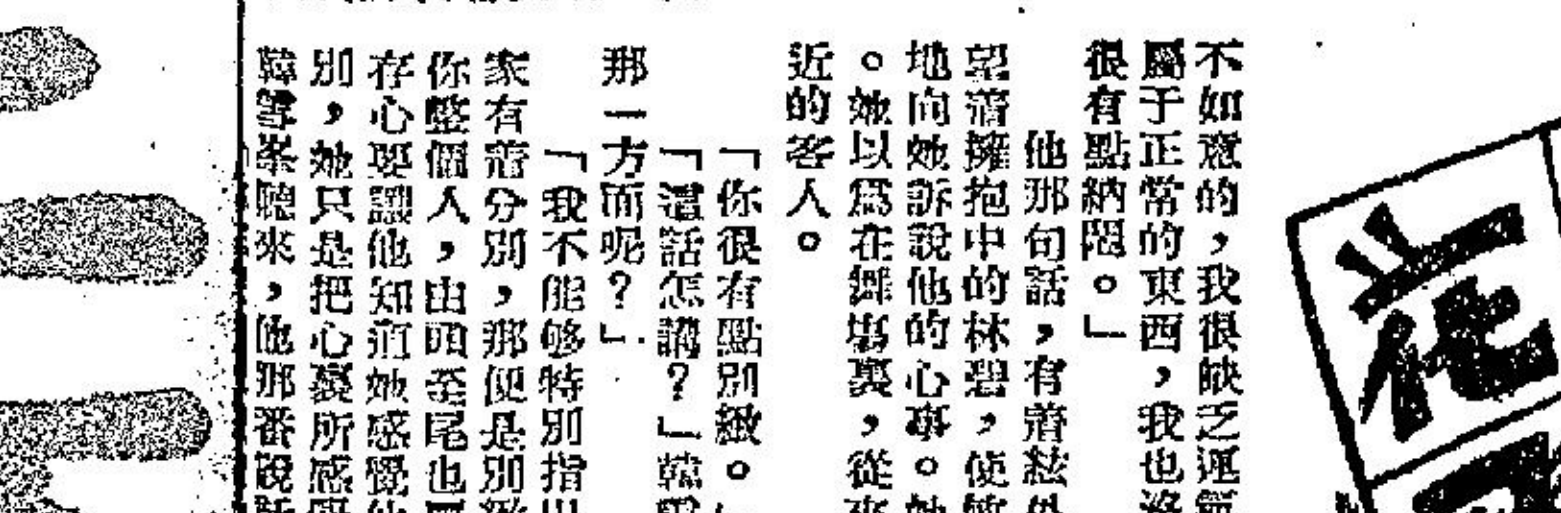 不如意的，我很缺乏運氣
屬于正常的東西，我也沒
很有點納悶。」
他那句話，有着絃外
望着擁抱中的林碧，使
地向她訴說他的心事。她
。她以爲在舞塲裏，從來
近的客人。
「你很有點別緻。」
「這話怎講？」韓雪
那一方面呢？」
「我不能够特別指出
家有着分別，那便是別緻
你整個人，由頭至尾也
存心要讓他知道她感覺他
別，她只是把心裏所感
韓雪峯聽來，他那番說話
花